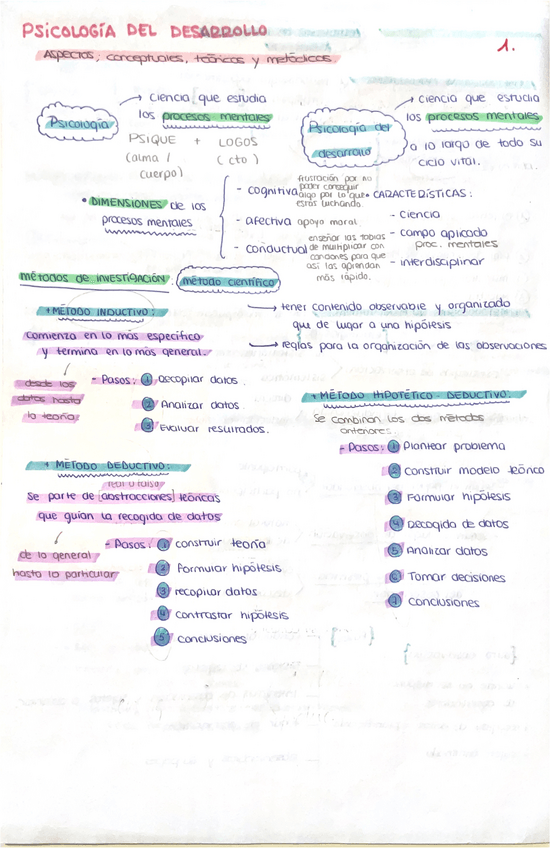 PSICOLOGÍA DEL DESARROLLO
1.
Aspectos; conceptuales, teóricos y metódicos
Psicología
→ ciencia que estudia
los procesos mentales
PSIQUE + LOGOS
(alma / (cto)
cuerpo)
Psicología del
desarrollo
→ ciencia que estudia
los procesos mentales
a lo largo de todo su
ciclo vital.
• DIMENSIONES de los
procesos mentales
- cognitiva
frustración por no
poder conseguir
algo por lo que
estás luchando
- afectiva apoyo moral
- conductual
enseñar las tablas
de multiplicar con
canciones para que
así las aprendan
más rápido.
• CARACTERÍSTICAS:
- Ciencia
- campo aplicado
proc. mentales
- interdisciplinar
MÉTODOS DE INVESTIGACIÓN.
Método científico
→ tener contenido observable y organizado
que de lugar a una hipólesis
→ reglas para la organización de las observaciones
+ MÉTODO INDUCTIVO:
comienza en lo más específico
y termina en lo más general.
desde los
datos hasta
la teoría
- Pasos: 1 Recopilar datos.
2 Analizar datos.
3 Evaluar resultados.
+ MÉTODO DEDUCTIVO:
real o falso
se parte de [abstracciones] teóricas
que guían la recogida de datos
de lo general
hasta lo particular
- Pasos: 1 construir teoría
2 Formular hipótesis
3 recopilar datos
4 Contrastar hipótesis
5 conclusiones
+ MÉTODO HIPOTÉTICO - DEDUCTIVO:
Se combinan los dos métodos
anteriores.
- Pasos: 1 Plantear problema
2 Construir modelo teórico
3 Formular hipótesis
4 Recogida de datos
5 Analizar datos
6 Tomar decisiones
7 Conclusiones